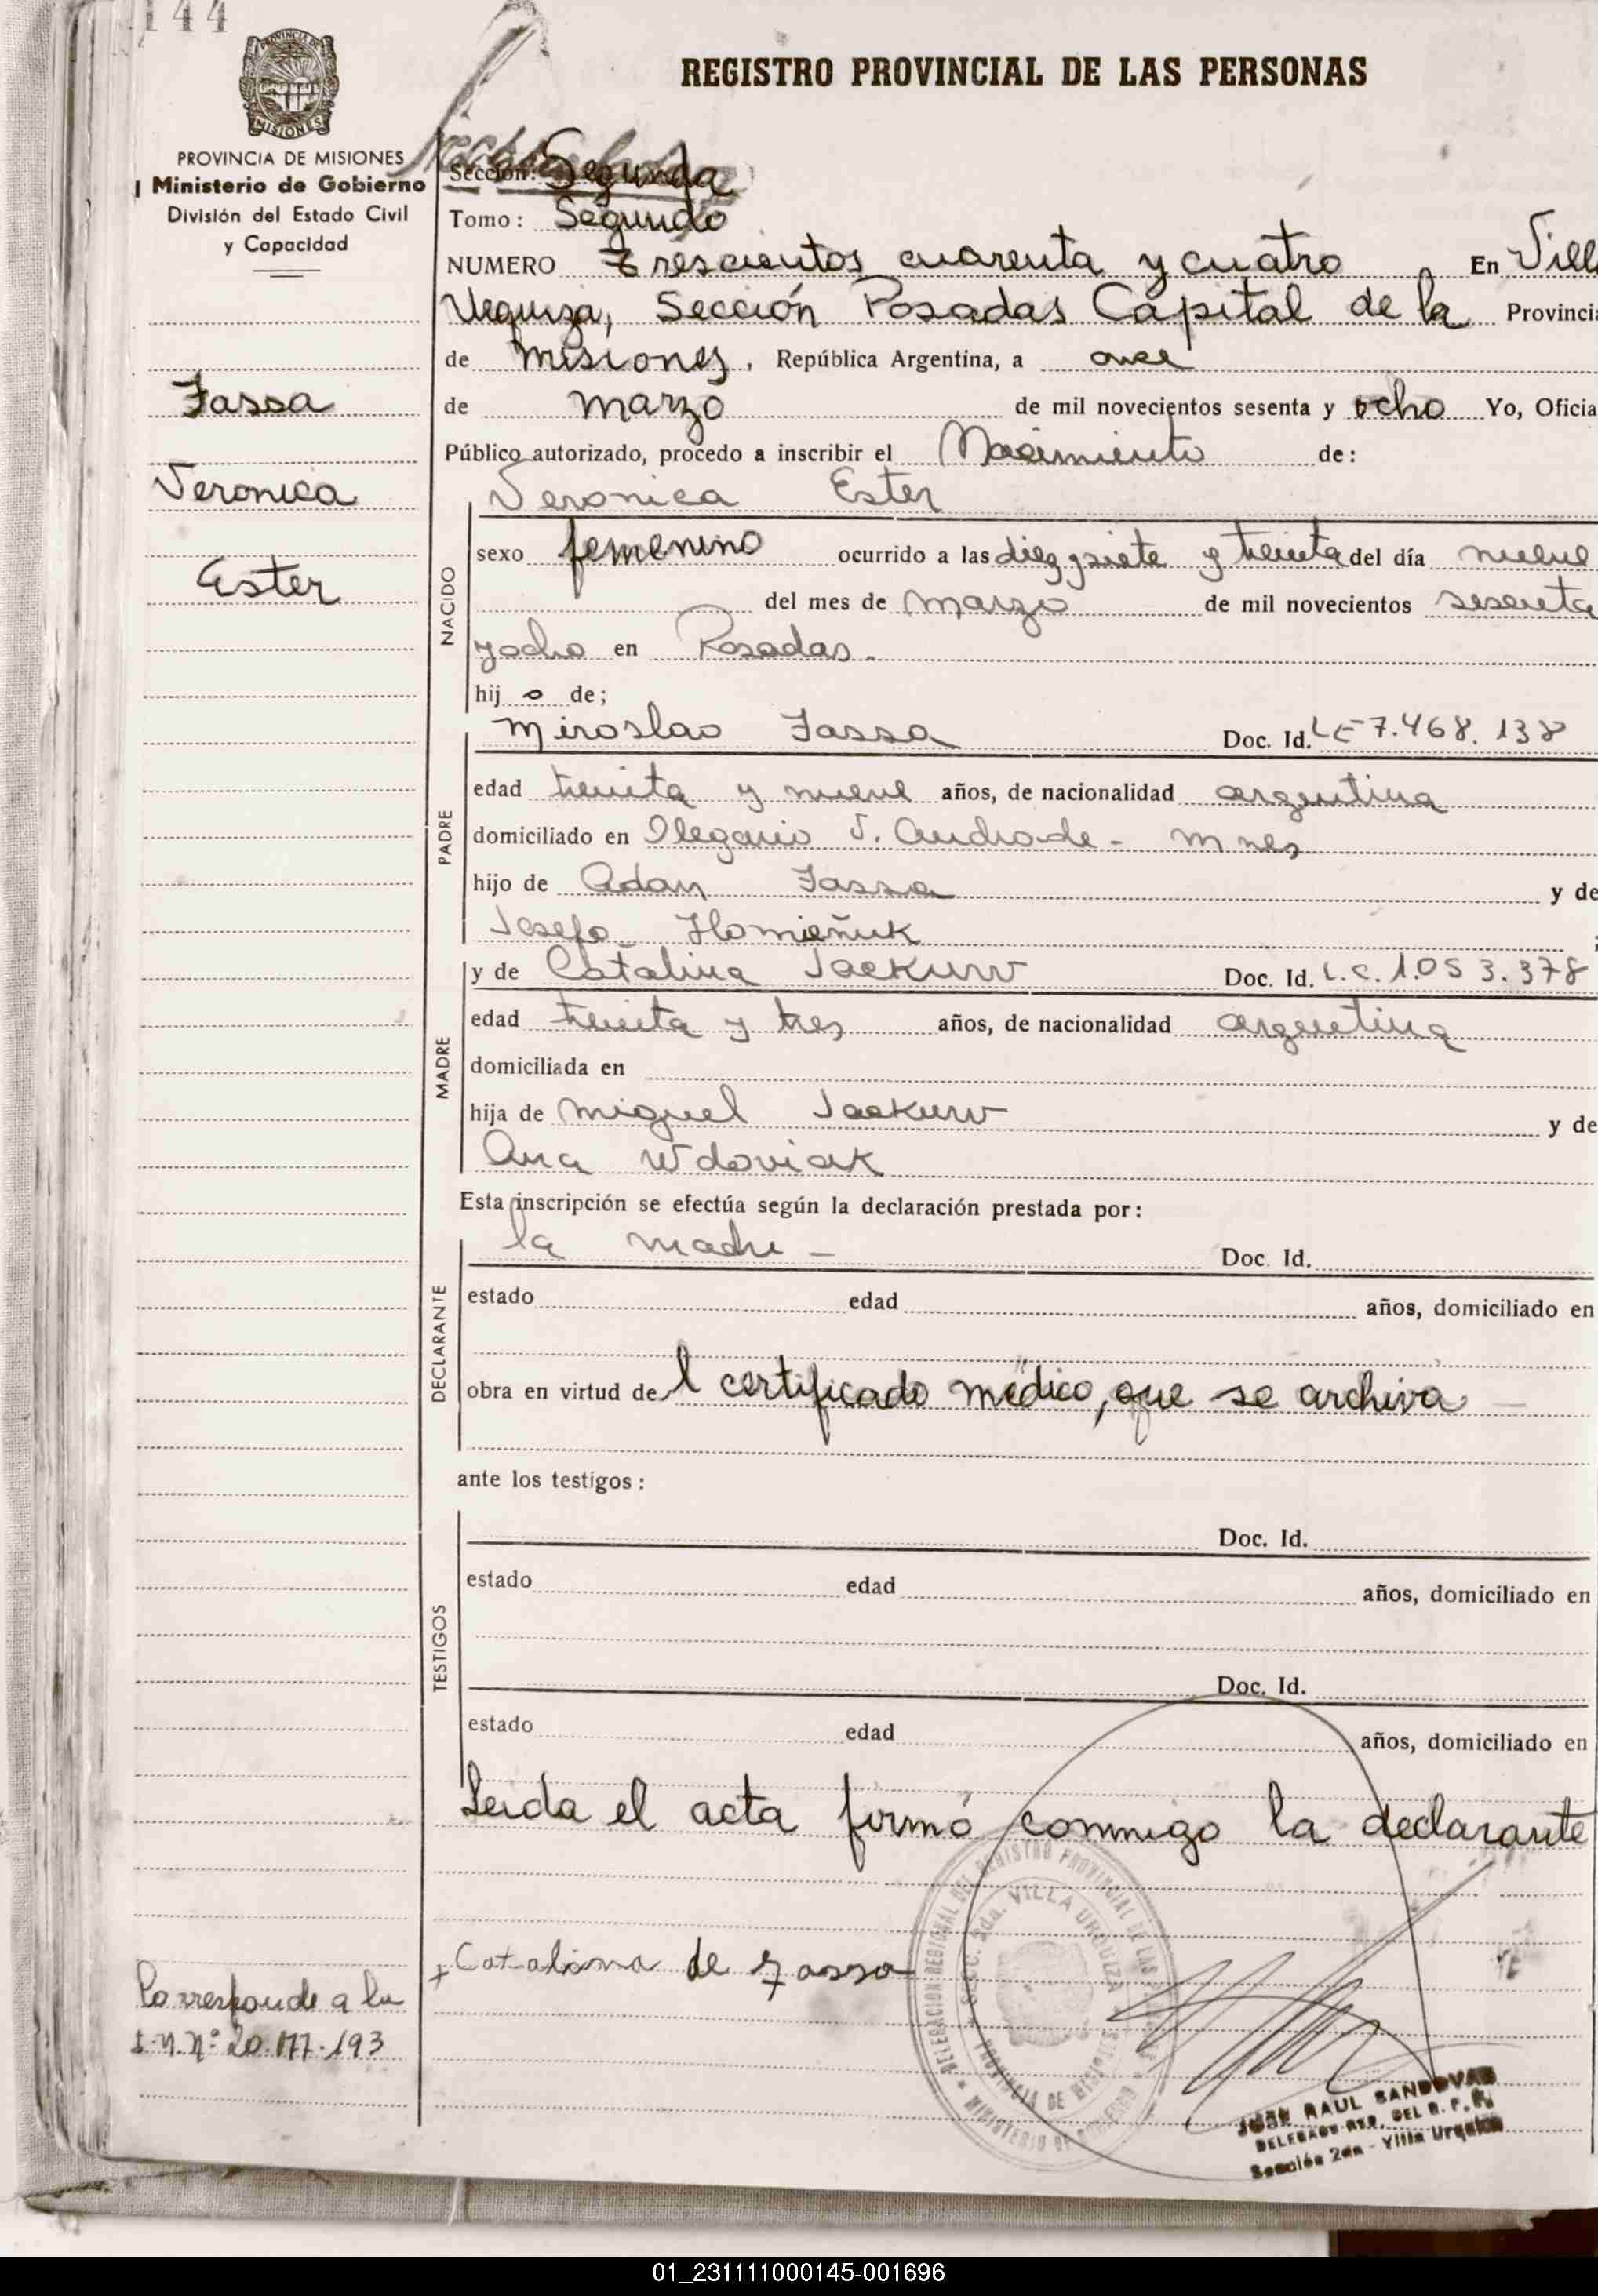 144
REGISTRO PROVINCIAL DE LAS PERSONAS
PROVINCIA DE MISIONES
Ministerio de Gobierno
División del Estado Civil
y Capacidad
Sección: Segunda
Tomo: Segundo
NUMERO Trescientos cuarenta y cuatro En Vill
Urquiza, Sección Posadas Capital de la Provincia
de Misiones, República Argentina, a once
de marzo de mil novecientos sesenta y ocho Yo, Oficia
Público autorizado, procedo a inscribir el Nacimiento de:
Veronica Ester
Fassa
Veronica
Ester
NACIDO
sexo femenino ocurrido a las diez y siete y treinta del día nueve
del mes de Marzo de mil novecientos sesenta
y ocho en Posadas.-
hij o de;
PADRE
Miroslao Fassa Doc. Id. LE 7.468.138
edad treinta y nueve años, de nacionalidad argentina
domiciliado en Olegario V. Andrade - Mnes
hijo de Adan Fassa y de
Josefa Homieñuk ;
MADRE
y de Catalina Jaekuw Doc. Id. L.C. 1.053.378
edad treinta y tres años, de nacionalidad argentina
domiciliada en
hija de Miguel Jaekuw y de
Ana Wdoviak
Esta inscripción se efectúa según la declaración prestada por:
DECLARANTE
la madre - Doc. Id.
estado edad años, domiciliado en
obra en virtud del certificado médico, que se archiva
ante los testigos:
TESTIGOS
Doc. Id.
estado edad años, domiciliado en
Doc. Id.
estado edad años, domiciliado en
Leida el acta firmó conmigo la declarante
Catalina de Fassa
Corresponde a la
Nº 20.177.193
DELEGACION REGIONAL DEL REGISTRO PROVINCIAL DE LAS
SECC. 2da. VILLA URQUIZA
PROVINCIA DE MISIONES
MINISTERIO DE GOBIERNO
JUAN RAUL SANDOVAL
DEL R. P. P.
Sección 2da - Villa Urquiza
01_231111000145-001696